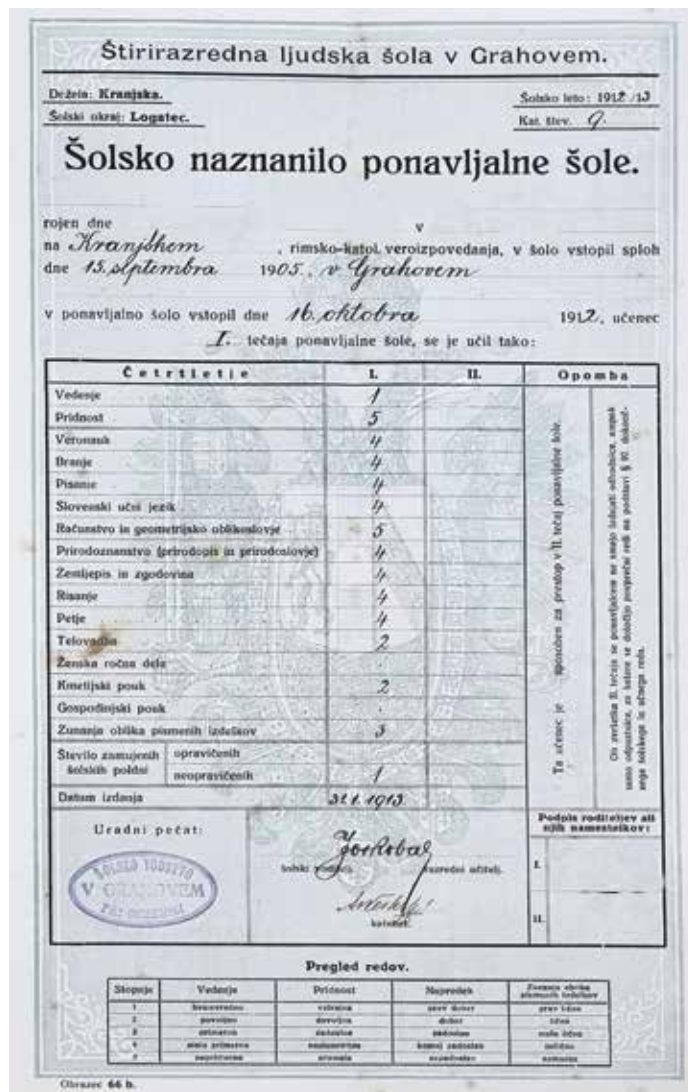 Štirirazredna ljudska šola v Grahovem.
Dežela: Kranjska.
Šolsko leto: 1912/13
Šolski okraj: Logatec.
Kat. štev. 9.
Šolsko naznanilo ponavljalne šole.
rojen dne v
na Kranjskem , rimsko-katol. veroizpovedanja, v šolo vstopil sploh
dne 15. septembra 1905, v Grahovem
v ponavljalno šolo vstopil dne 16. oktobra 1912, učenec
I. tečaja ponavljalne šole, se je učil tako:
Četrtletje I. II. Opomba
Vedenje 1
Pridnost 5
Veronauk 4
Branje 4
Pisanje 4
Slovenski učni jezik 4
Računstvo in geometrijsko oblikoslovje 5
Prirodoznanstvo (prirodopis in prirodoslovje) 4
Zemljepis in zgodovina 4
Risanje 4
Petje 4
Telovadba 2
Ženska ročna dela
Kmetijski pouk 2
Gospodinjski pouk
Zunanja oblika pismenih izdelkov 3
Število zamujenih šolskih poldni
opravičenih
neopravičenih 1
Datum izdanja 31.1.1913.
Ta učenec je sposoben za prestop v II. tečaj ponavljalne šole.
Uradni pečat:
V GRAHOVEM
šolski razredni učitelj.
katehet.
Podpis roditeljev ali
njih namestnikov:
I.
II.
Pregled redov.
Stopnje Vedenje Pridnost Napredek Zunanja oblika pismenih izdelkov
1 prav dober
2 dober
3 zadosten
4
5
Obrazec 66 b.